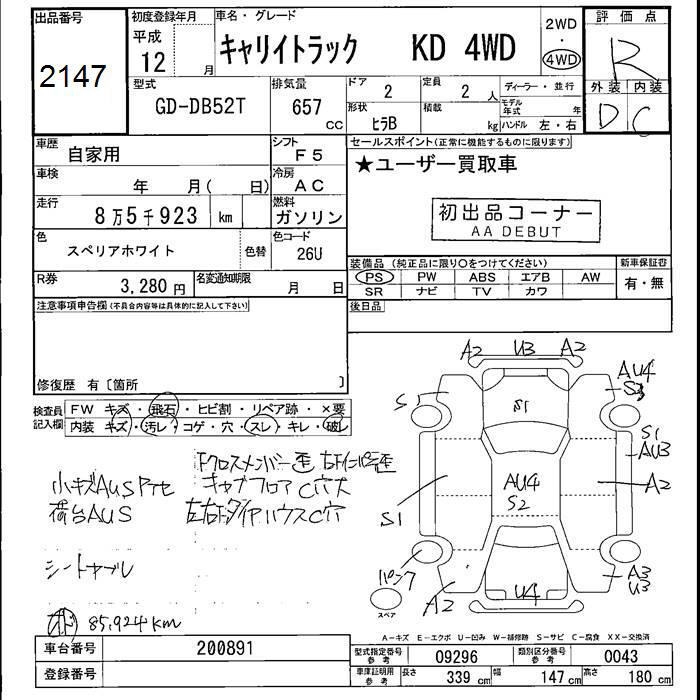 出品番号
2147
初度登録年月
平成
12 月
車名・グレード
キャリイトラック KD 4WD
2WD
・
4WD
評価点
R
外装 内装
D C
型式
GD-DB52T
排気量
657 cc
ドア
2
定員
2 人
形状
ヒラB
積載
kg
ディーラー・並行
モデル年式 年
ハンドル 左・右
車歴
自家用
シフト
F5
車検
年 月( 日)
冷房
AC
走行
8万5千923 km
燃料
ガソリン
色
スペリアホワイト
色替
色コード
26U
R券
3,280 円
名変通知期限
月 日
セールスポイント(正常に機能するものに限ります)
★ユーザー買取車
初出品コーナー
AA DEBUT
装備品(純正品に限り○をつけてください)
PS PW ABS エアB AW
SR ナビ TV カワ
新車保証書
有・無
後日品
注意事項申告欄(不具合内容等は具体的に記入して下さい)
修復歴 有〔箇所 〕
検査員記入欄
FW キズ・飛石・ヒビ割・リペア跡・×要
内装 キズ・汚レ・コゲ・穴・スレ・キレ・破レ
小キズAUS
荷台AUS
キャブフロアC穴大
シートヤブレ
85,924km
A2 U3 A2
AU4
S1
S1
S1
AU3
A2
AU4
S2
S1
パンク
A2
U4
A3
U3
スペア
A-キズ E-エクボ U-凹み W-補修跡 S-サビ C-腐食 XX-交換済
車台番号
200891
登録番号
型式指定番号 参考
09296
類別区分番号 参考
0043
車庫証明用 参考
長さ 339 cm
幅 147 cm
高さ 180 cm